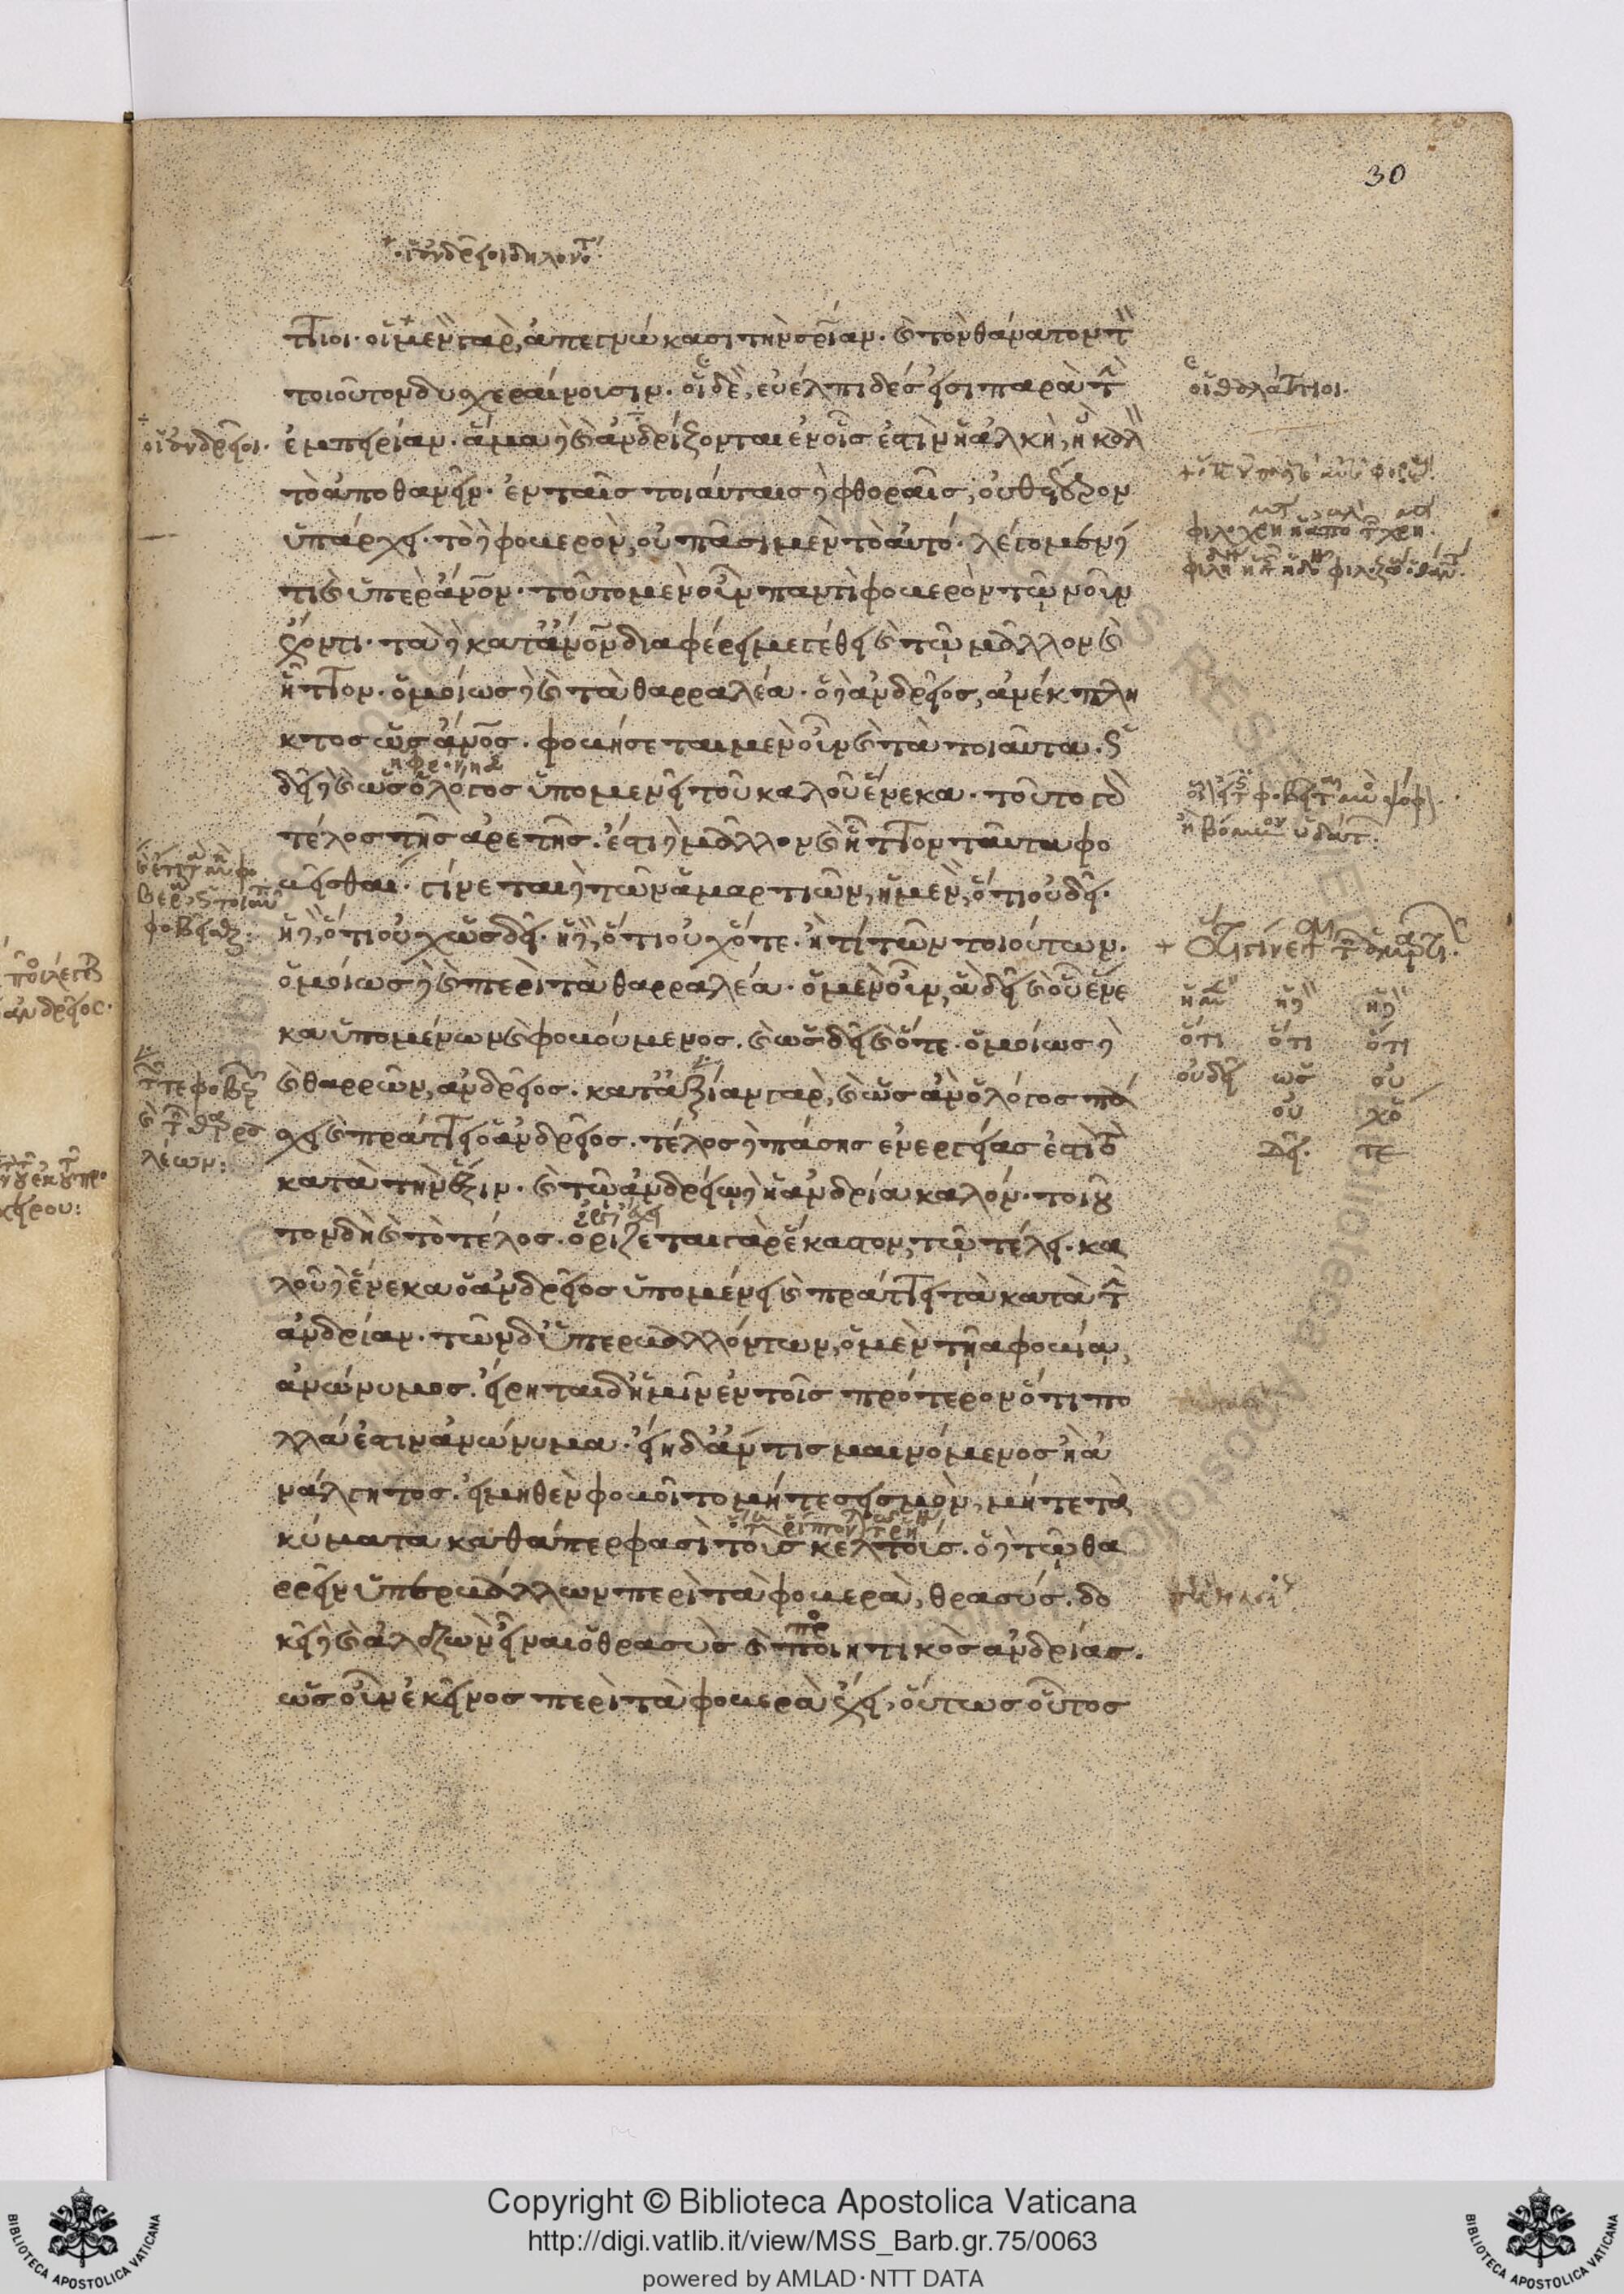 30
οἱ ἀνδρεῖοι δηλονότι
ττιοι· οἱ μὲν γὰρ, ἀπεγνώκασι τὴν σρίαν· καὶ τὸν θάνατον τὸν
τοιοῦτον δυσχεραίνουσιν· οἱ δὲ, εὐέλπιδές εἰσι παρὰ τὴν
ἐμπειρίαν· ἅμα δὲ καὶ ἀνδρίζονται ἐν οἷς ἐστὶν ἡ ἀλκὴ, ἢ καλὸν
τὸ ἀποθανεῖν· ἐν ταῖς τοιαύταις δὲ φθοραῖς, οὐθέτερον
ὑπάρχει· τὸ δὲ φοβερὸν, οὐ πᾶσι μὲν τὸ αὐτό· λέγομεν δέ
τι καὶ ὑπὲρ ἄνον· τοῦτο μὲν οὖν παντὶ φοβερὸν τῷ νοῦν
ἔχοντι· τὰ δὲ κατ' ἄνον διαφέρει μεγέθει καὶ τῷ μᾶλλον καὶ
ἧττον· ὁμοίως δὲ καὶ τὰ θαρραλέα· ὁ δὲ ἀνδρεῖος, ἀνέκπλη
κτος ὡς ἄνος· φοβήσεται μὲν οὖν καὶ τὰ τοιαῦτα· ὡς
δεῖ δὲ καὶ ὡς ὁ λόγος ὑπομενεῖ τοῦ καλοῦ ἕνεκα· τοῦτο γὰρ
τέλος τῆς ἀρετῆς· ἔστι δὲ μᾶλλον καὶ ἧττον ταῦτα φο
βεῖσθαι· γίνεται δὲ τῶν ἁμαρτιῶν, ἡ μὲν, ὅτι οὐ δεῖ·
ἡ δὲ, ὅτι οὐχ ὡς δεῖ· ἡ δὲ, ὅτι οὐχ ὅτε· ἤ τι τῶν τοιούτων·
ὁμοίως δὲ καὶ περὶ τὰ θαρραλέα· ὁ μὲν οὖν, ἃ δεῖ καὶ οὗ ἕνε
κα ὑπομένων καὶ φοβούμενος· καὶ ὡς δεῖ καὶ ὅτε· ὁμοίως δὲ
καὶ θαρρῶν, ἀνδρεῖος· κατ' ἀξίαν γὰρ, καὶ ὡς ἂν ὁ λόγος πά
σχει καὶ πράττει ὁ ἀνδρεῖος· τέλος δὲ πάσης ἐνεργείας ἐστὶ τὸ
κατὰ τὴν ἕξιν· καὶ τῷ ἀνδρείῳ δὲ ἡ ἀνδρία καλόν· τοιοῦ
τον δὴ καὶ τὸ τέλος· ὁρίζεται γὰρ ἕκαστον, τῷ τέλει· κα
λοῦ δὲ ἕνεκα ὁ ἀνδρεῖος ὑπομένει καὶ πράττει τὰ κατὰ τὴν
ἀνδρίαν· τῶν δ' ὑπερβαλλόντων, ὁ μὲν τῇ ἀφοβίᾳ,
ἀνώνυμος· εἴρηται δ' ἡμῖν ἐν τοῖς πρότερον ὅτι πο
λλά ἐστιν ἀνώνυμα· εἴη δ' ἄν τις μαινόμενος ἢ ἀ
νάλγητος· εἰ μηθὲν φοβοῖτο μήτε σεισμὸν, μήτε τὰ
κύματα καθάπερ φασὶ τοὺς κελτούς· ὁ δὲ τῷ θα
ρρεῖν ὑπερβάλλων περὶ τὰ φοβερὰ, θρασύς· δο
κεῖ δὲ καὶ ἀλαζὼν εἶναι ὁ θρασὺς καὶ ποιητικὸς ἀνδρίας·
ὡς οὖν ἐκεῖνος περὶ τὰ φοβερὰ ἔχει, οὕτως οὗτος
οἱ ἀνδρεῖοι·
οἱ θαλάττιοι·
ἡ μὲν ἡ δὲ ἡ δὲ
ὅτι ὅτι ὅτι
οὐ δεῖ ὡς οὐ
οὐ χὅ
δεῖ· τε
ἀνδρεῖος·
Copyright © Biblioteca Apostolica Vaticana
http://digi.vatlib.it/view/MSS_Barb.gr.75/0063
powered by AMLAD·NTT DATA
BIBLIOTECA APOSTOLICA VATICANA
BIBLIOTECA APOSTOLICA VATICANA